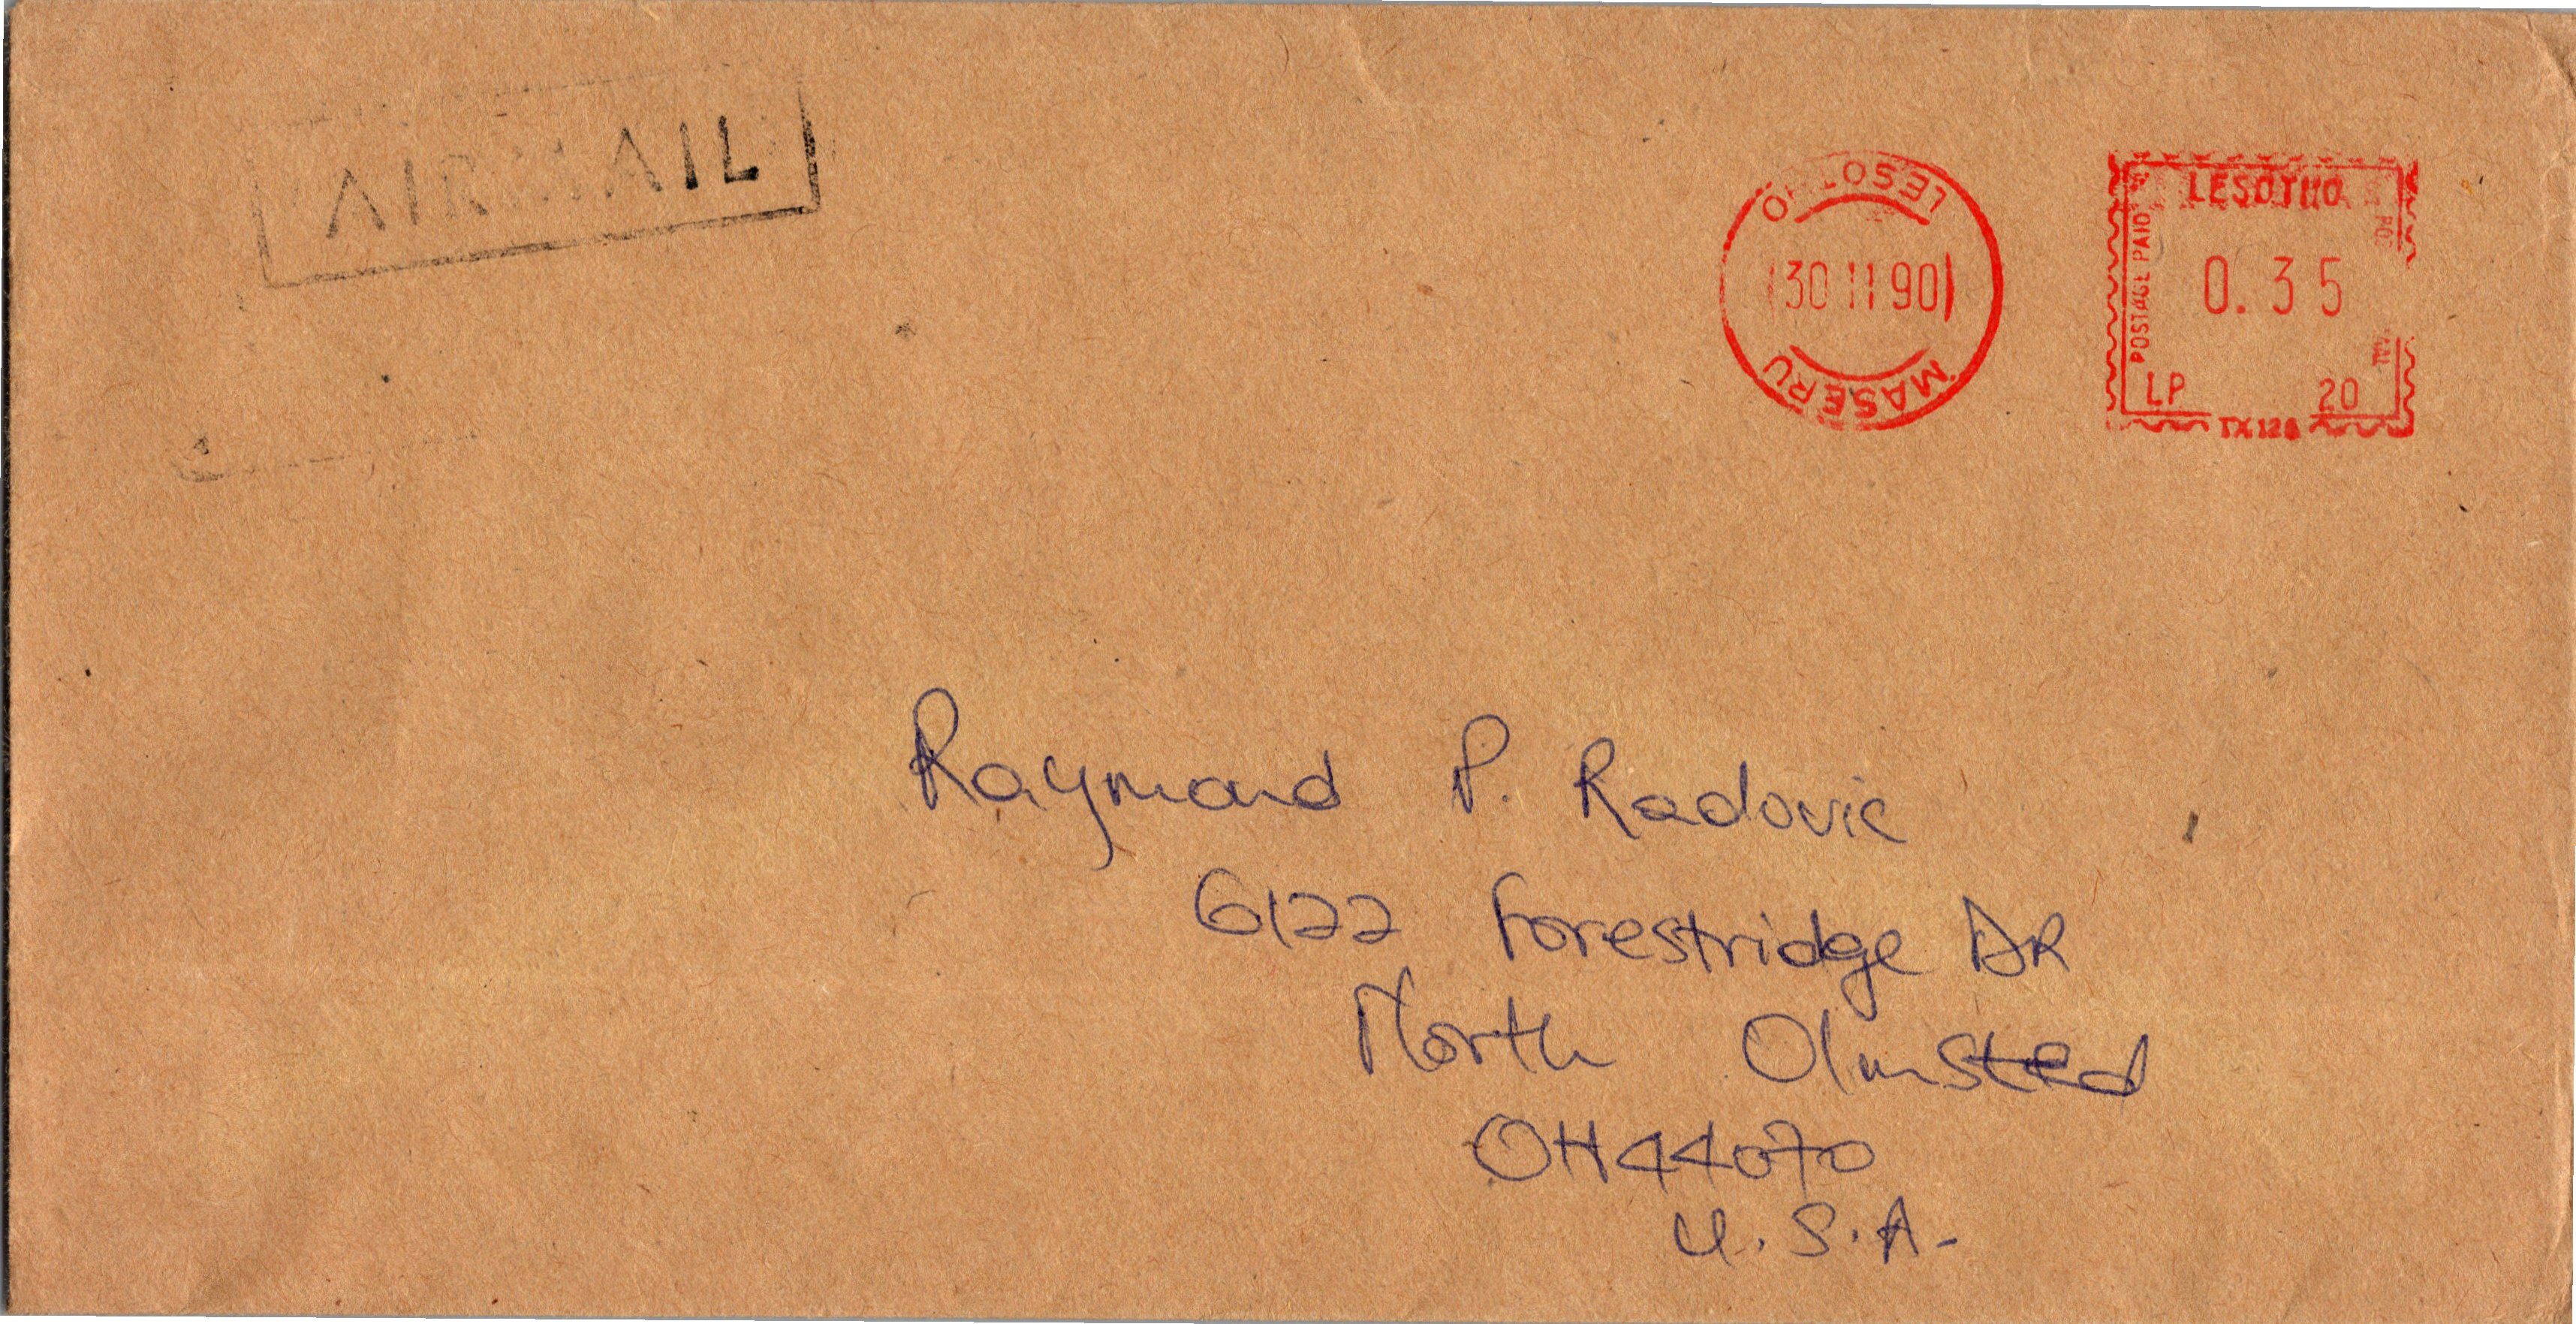 AIRMAIL
LESOTHO
30 11 90
MASERU
LESOTHO
POSTAGE PAID
0.35
LP 20
Raymond P. Radovic
6122 Forestridge DR
North Olmsted
OH 44070
U.S.A.